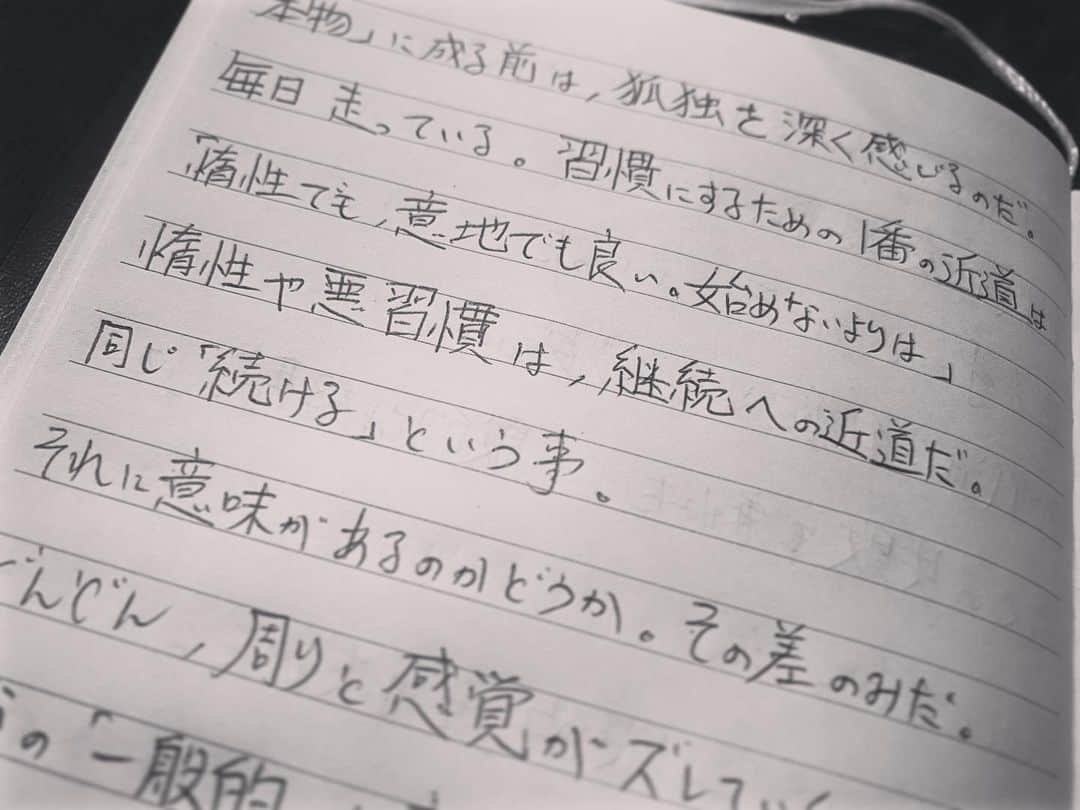 本物」に成る前は,孤独を深く感じるのだ。
毎日走っている。習慣にするための1番の近道は
「惰性でも,意地でも良い。始めないよりは」
惰性や悪習慣は,継続への近道だ。
同じ「続ける」という事。
それに意味があるのかどうか。その差のみだ。
んどん,周りと感覚がズレてい
の「一般的